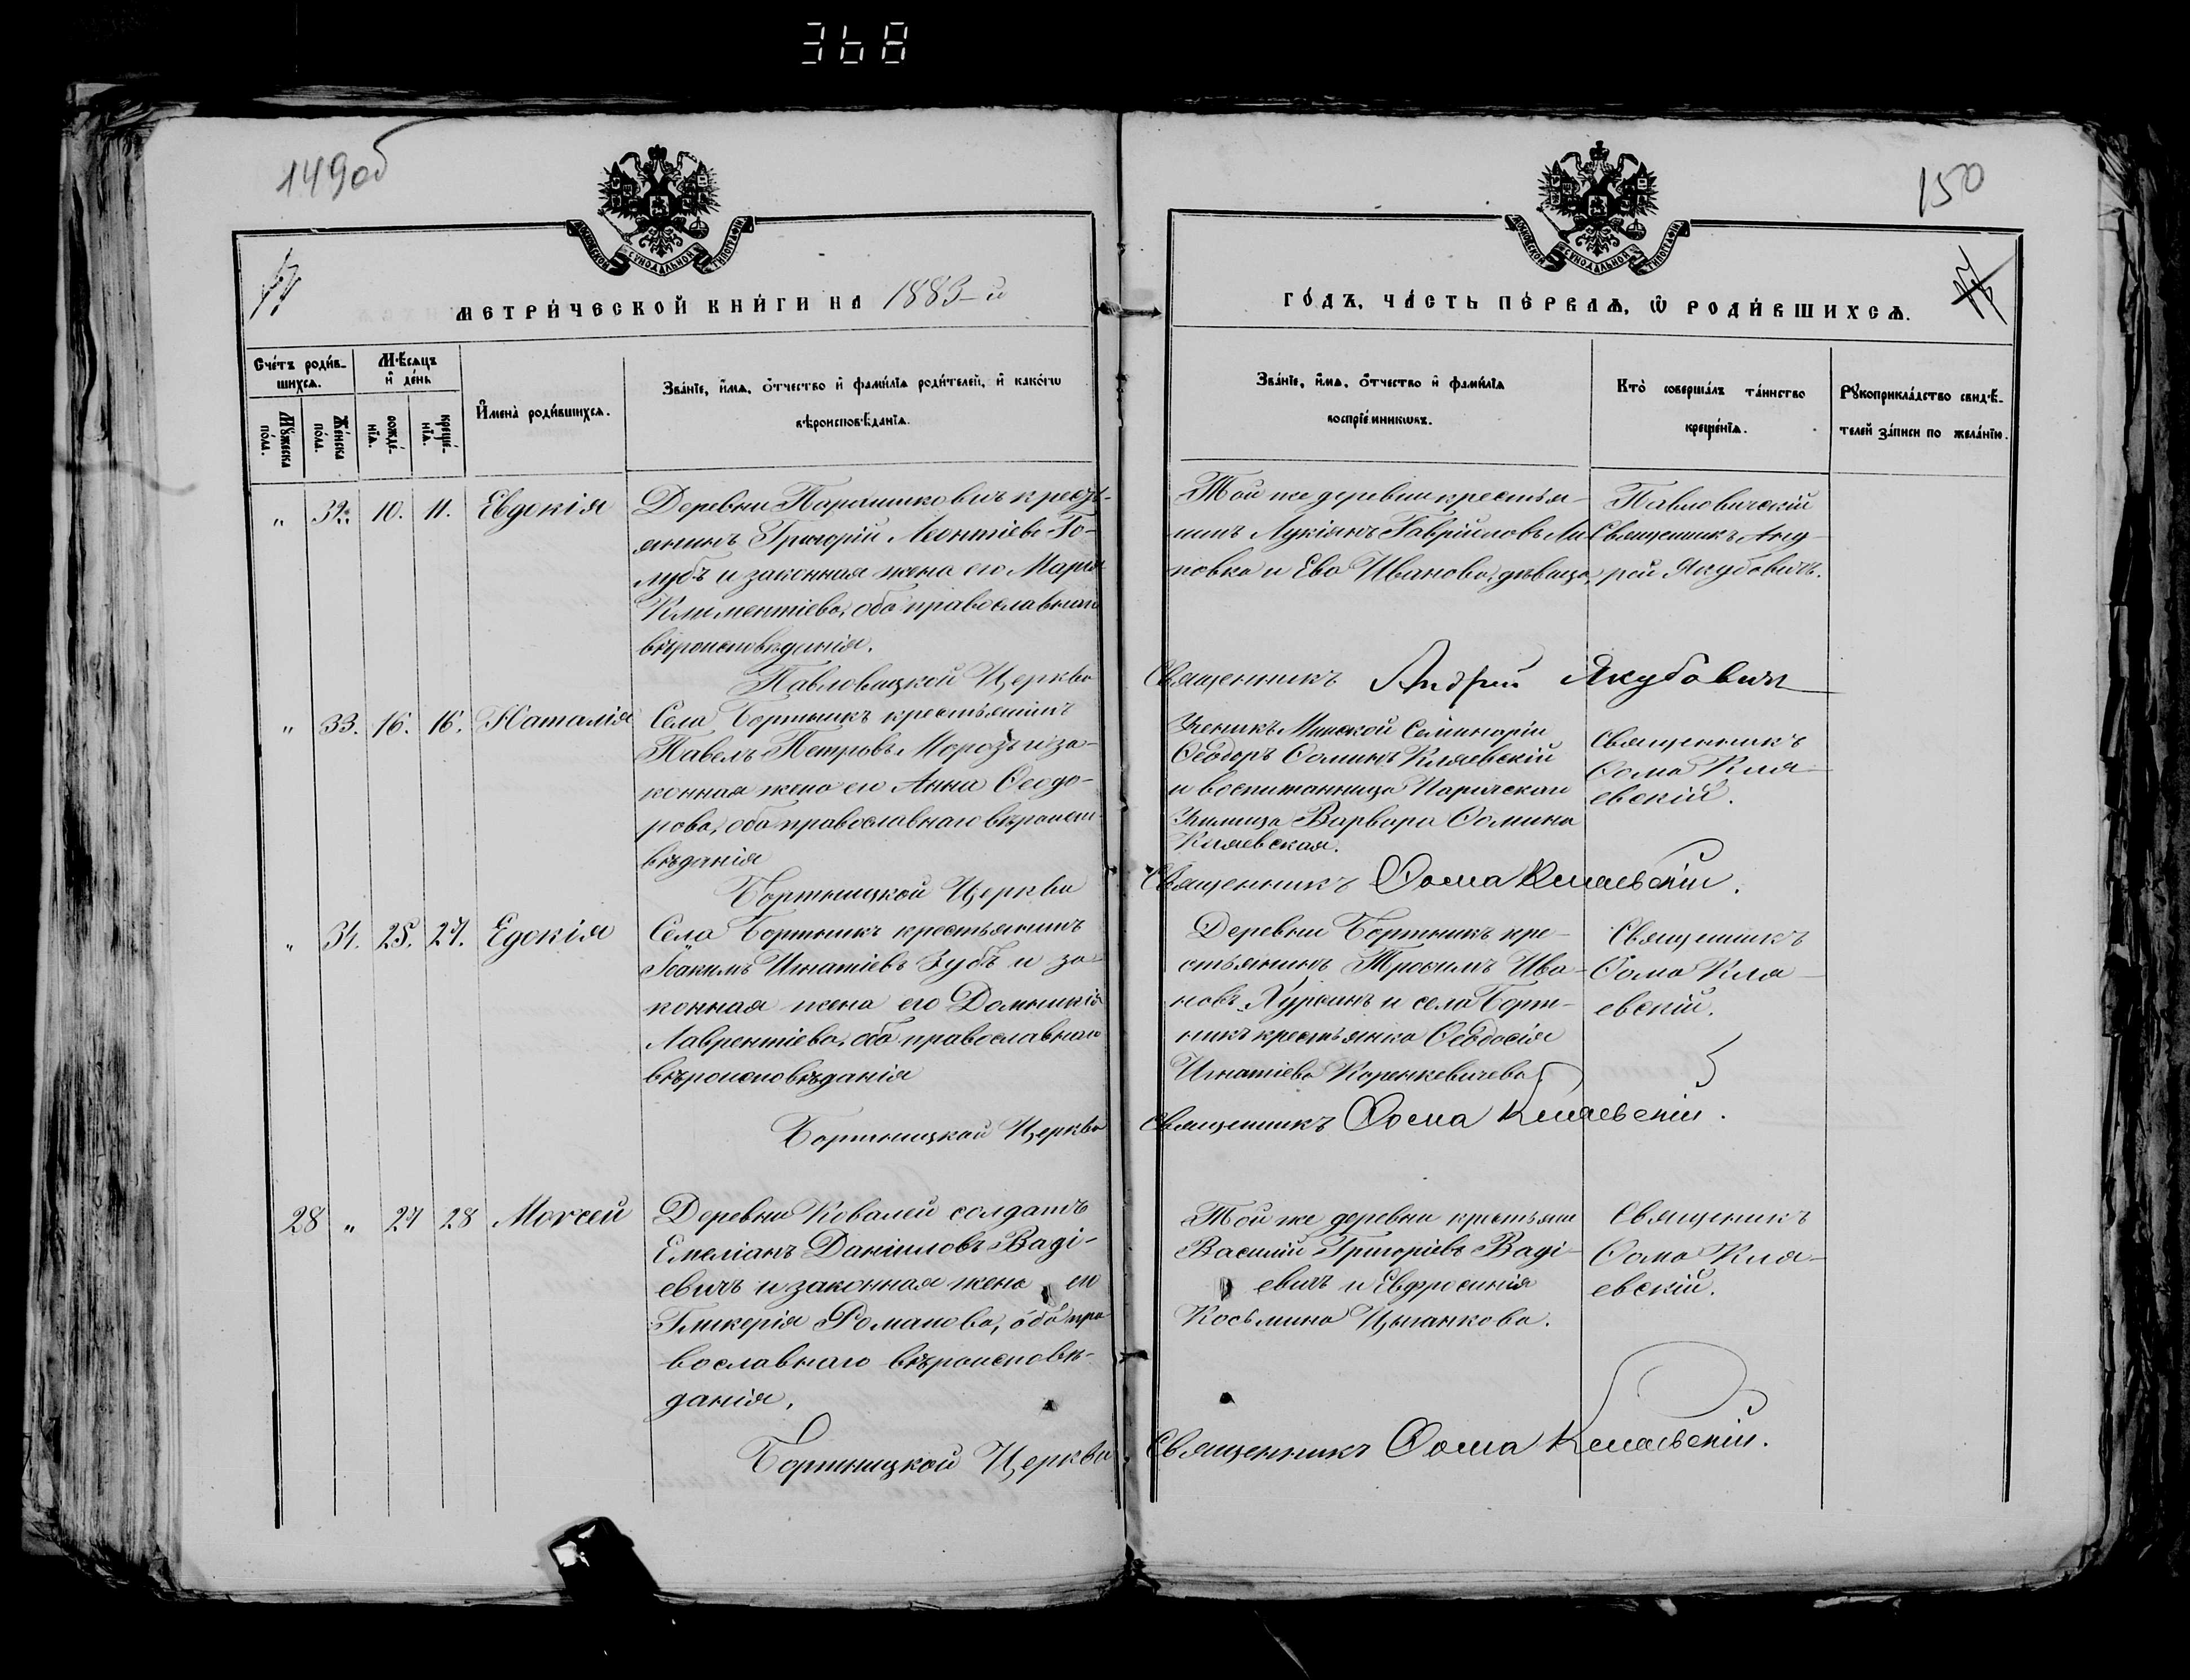 368
149об
150
МОСКОВСКОЙ СУНОДАЛЬНОЙ ТИПОГРАФІИ
МОСКОВСКОЙ СУНОДАЛЬНОЙ ТИПОГРАФІИ
МЕТРИ́ЧЕСКОЙ КНИ́ГИ НА 1883-й
ГО́ДЪ, ЧА́СТЬ ПЕ́РВАѦ, Ѡ҆ РОДИ́ВШИХСѦ.
Сче́тъ роди́в-
шихсѧ.
Мѣ́сѧцъ
и҆ де́нь
Мꙋ́жеска
по́ла.
Же́нска
по́ла.
рожде́-
нїѧ.
креще́-
нїѧ.
И҆мена̀ роди́вшихсѧ.
Зва́нїе, и҆́мѧ, ѻ҆́тчество и҆ фами́лїѧ роди́телей, и҆ како́гѡ
вѣроисповѣ́данїѧ.
Зва́нїе, и҆́мѧ, ѻ҆́тчество и҆ фами́лїѧ
воспрїе́мникѡвъ.
Кто̀ соверша́лъ та́инство
креще́нїѧ.
Рꙋкоприкла́дство свидѣ́-
телей за́писи по жела́нїю.
" 32. 10. 11. Евдокія
Деревни Паромковичъ кресть-
янинъ Григорій Леонтіевъ Го-
лубъ и законная жена его Марія
Климентіева, оба православнаго
вѣроисповѣданія.
Павловицкой Церкви
Той же деревни крестья-
нинъ Лукіянъ Гавріиловъ Ли-
повка и Ева Иванова, дѣвица,
Павловичскій
Священникъ Анд-
рей Якубовичъ.
Священникъ Андрей Якубовичъ
" 33. 16. 16. Наталія
Села Бортникъ крестьянинъ
Павелъ Петровъ Морозъ и за-
конная жена его Анна Ѳеодо-
рова, оба православнаго вѣроиспо-
вѣданія
Бортницкой Церкви
Ученикъ Минской Семинаріи
Ѳеодоръ Ѳоминъ Кляевскій
и воспитанница Паричскаго
Училища Варвара Ѳомина
Кляевская.
Священникъ
Ѳома Кля-
евскій.
Священникъ Ѳома Кляевскій.
" 34. 25. 27. Едокія
Села Бортникъ крестьянинъ
Іоакимъ Игнатіевъ Зубъ и за-
конная жена его Домникія
Лаврентіева, оба православнаго
вѣроисповѣданія
Бортницкой Церкви
Деревни Бортникъ кре-
стьянинъ Трофимъ Ива-
новъ и села Борт-
никъ крестьянка Ѳеодосія
Игнатіева Коренкевичева
Священникъ
Ѳома Кля-
евскій.
Священникъ Ѳома Кляевскій.
28 " 27 28 Моѵсей
Деревни Ковалей солдатъ
Емеліанъ Даніиловъ Ваді-
евичъ и законная жена его
Гликерія Романова, оба пра
вославнаго вѣроисповѣ-
данія.
Бортницкой Церкви
Той же деревни крестьяне
Василій Григоріевъ Ваді-
евичъ и Евфросинія
Косьмина Цыганкова.
Священникъ
Ѳома Кля-
евскій.
Священникъ Ѳома Кляевскій.